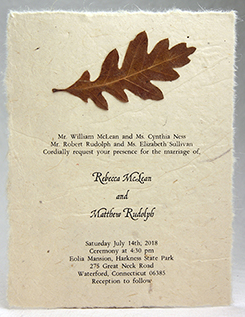 Mr. William McLean and Ms. Cynthia Ness
Mr. Robert Rudolph and Ms. Elizabeth Sullivan
Cordially request your presence for the marriage of,
Rebecca McLean
and
Matthew Rudolph
Saturday July 14th, 2018
Ceremony at 4:30 pm
Eolia Mansion, Harkness State Park
275 Great Neck Road
Waterford, Connecticut 06385
Reception to follow